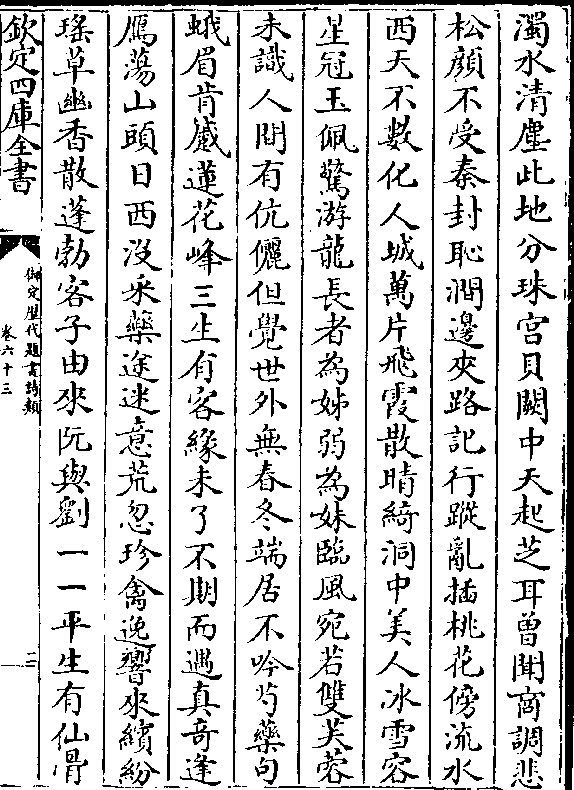 濁水清塵此地分珠宫貝闕中天起芝耳曾聞商調悲
松顔不受秦封恥澗邊夾路記行蹤亂插桃花傍流水
西天不數化人城萬片飛霞散晴綺洞中美人冰雪容
星冠玉佩驚游龍長者為姊弱為妹臨風宛若雙芙蓉
未識人間有伉儷但覺世外無春冬端居不吟芍藥句
蛾眉肯蹙蓮花峰三生有客緣未了不期而遇真奇逢
鴈蕩山頭日西沒采藥途迷意荒忽珍禽逸響來繽紛
瑤草幽香散蓬勃客子由來阮與劉一一平生有仙骨
欽定四庫全書
御定歷代題畫詩類
卷六十三
二